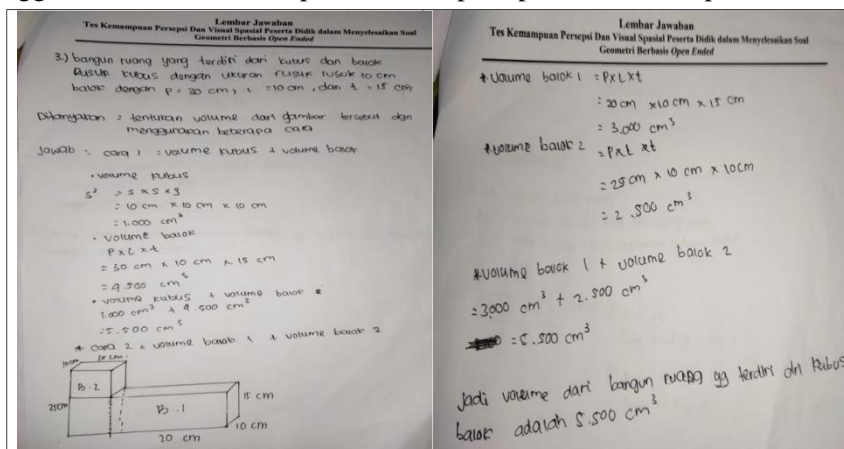 Lembar Jawaban
Tes Kemampuan Persepsi Dan Visual Spasial Peserta Didik dalam Menyelesaikan Soal
Geometri Berbasis Open Ended
3.) bangun ruang yang terdiri dari kubus dan balok
Rusuk kubus dengan ukuran rusuk rusuk 10 cm
balok dengan p = 30 cm, l = 10 cm, dan t = 15 cm
Ditanyakan = tentukan volume dari gambar tersebut dgn
menggunakan beberapa cara
Jawab : cara 1 = volume kubus + volume balok
• volume kubus
s³ = s x s x s
= 10 cm x 10 cm x 10 cm
= 1.000 cm³
• volume balok
P x L x t
= 30 cm x 10 cm x 15 cm
= 4.500 cm³
• volume kubus + volume balok =
1.000 cm³ + 4.500 cm³
= 5.500 cm³
* cara 2 = volume balok 1 + volume balok 2
10 cm
10 cm
B. 2
25cm
B. 1
15 cm
10 cm
20 cm
Lembar Jawaban
Tes Kemampuan Persepsi Dan Visual Spasial Peserta Didik dalam Menyelesaikan Soal
Geometri Berbasis Open Ended
* Volume balok 1 = P x L x t
= 20 cm x 10 cm x 15 cm
= 3.000 cm³
* volume balok 2 = P x L x t
= 25 cm x 10 cm x 10 cm
= 2.500 cm³
* volume balok 1 + volume balok 2
= 3000 cm³ + 2.500 cm³
= 5.500 cm³
Jadi volume dari bangun ruang yg terdiri dri kubus
balok adalah 5.500 cm³